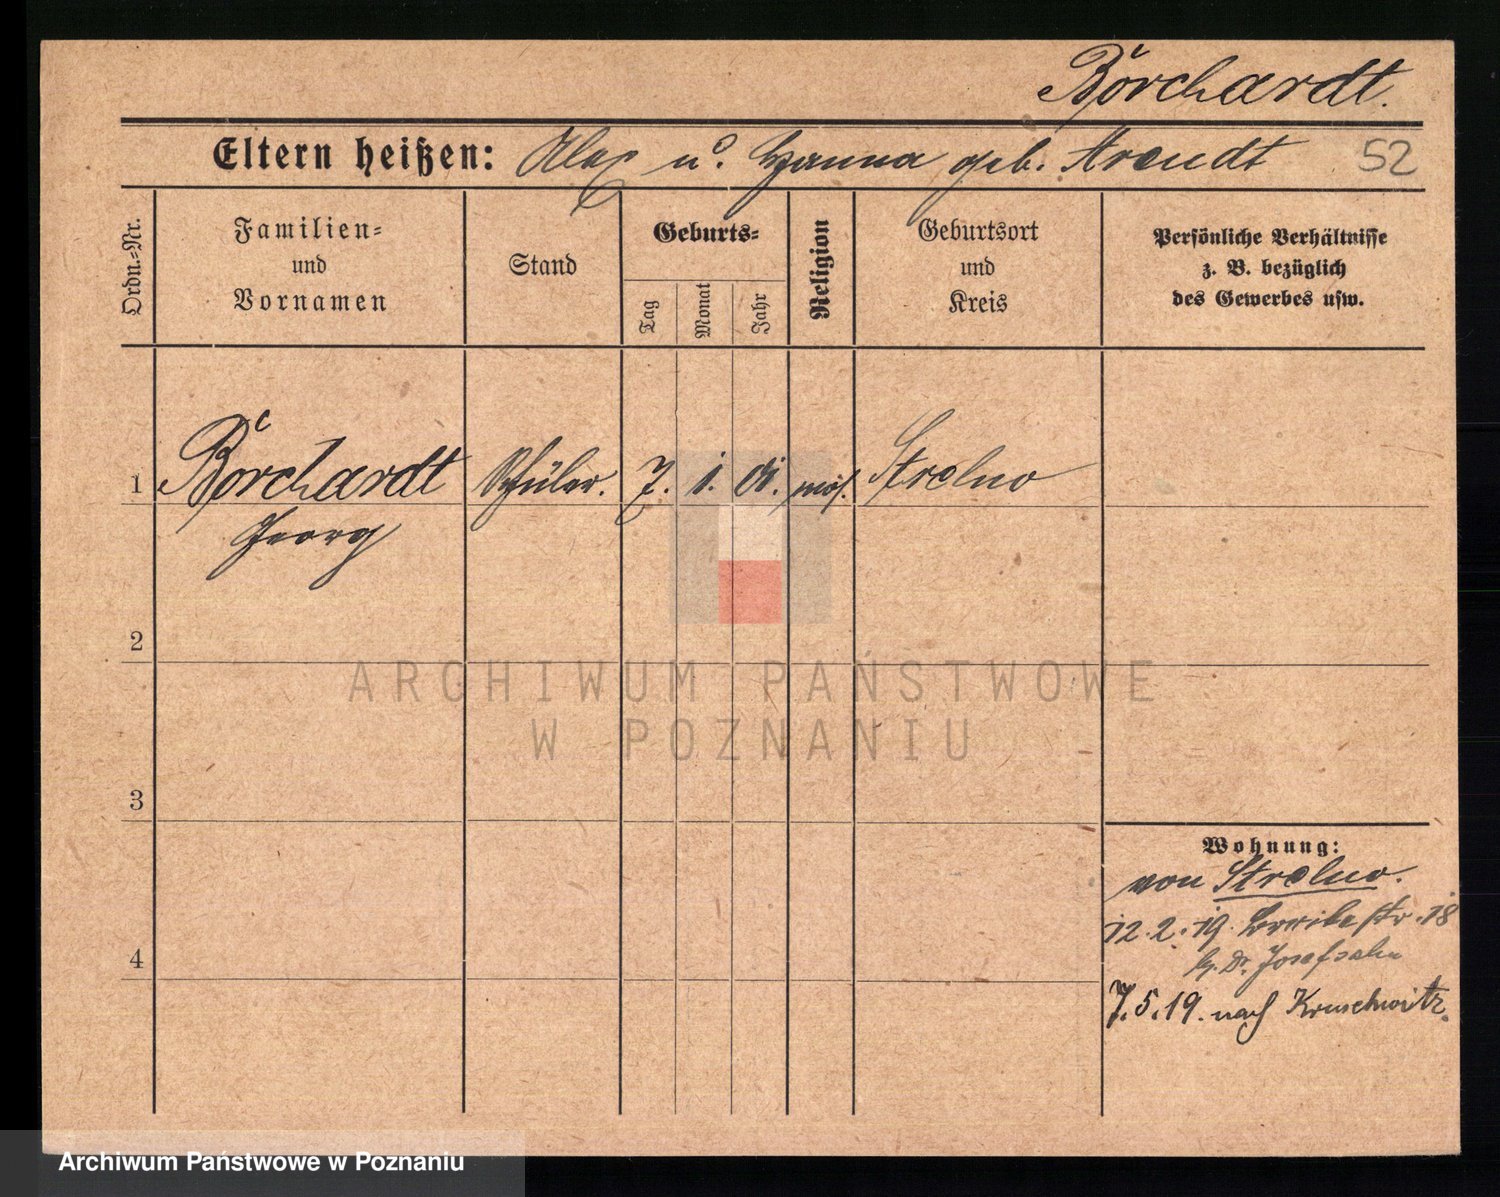 Borchardt.
Eltern heißen: Alex u. Hanna geb. Arendt 52
Ordn.=Nr.
Familien=
und
Vornamen
Stand
Geburts=
Tag
Monat
Jahr
Religion
Geburtsort
und
Kreis
Persönliche Verhältnisse
z. B. bezüglich
des Gewerbes usw.
1 Borchardt Schüler. 7. 1. 01. mos. Strelno
Georg
2
ARCHIWUM PAŃSTWOWE
W POZNANIU
3
Wohnung:
von Strelno.
4
12.2.19. str. 18
b. Dr. Josefsohn
7.5.19. nach Kruschwitz.
Archiwum Państwowe w Poznaniu